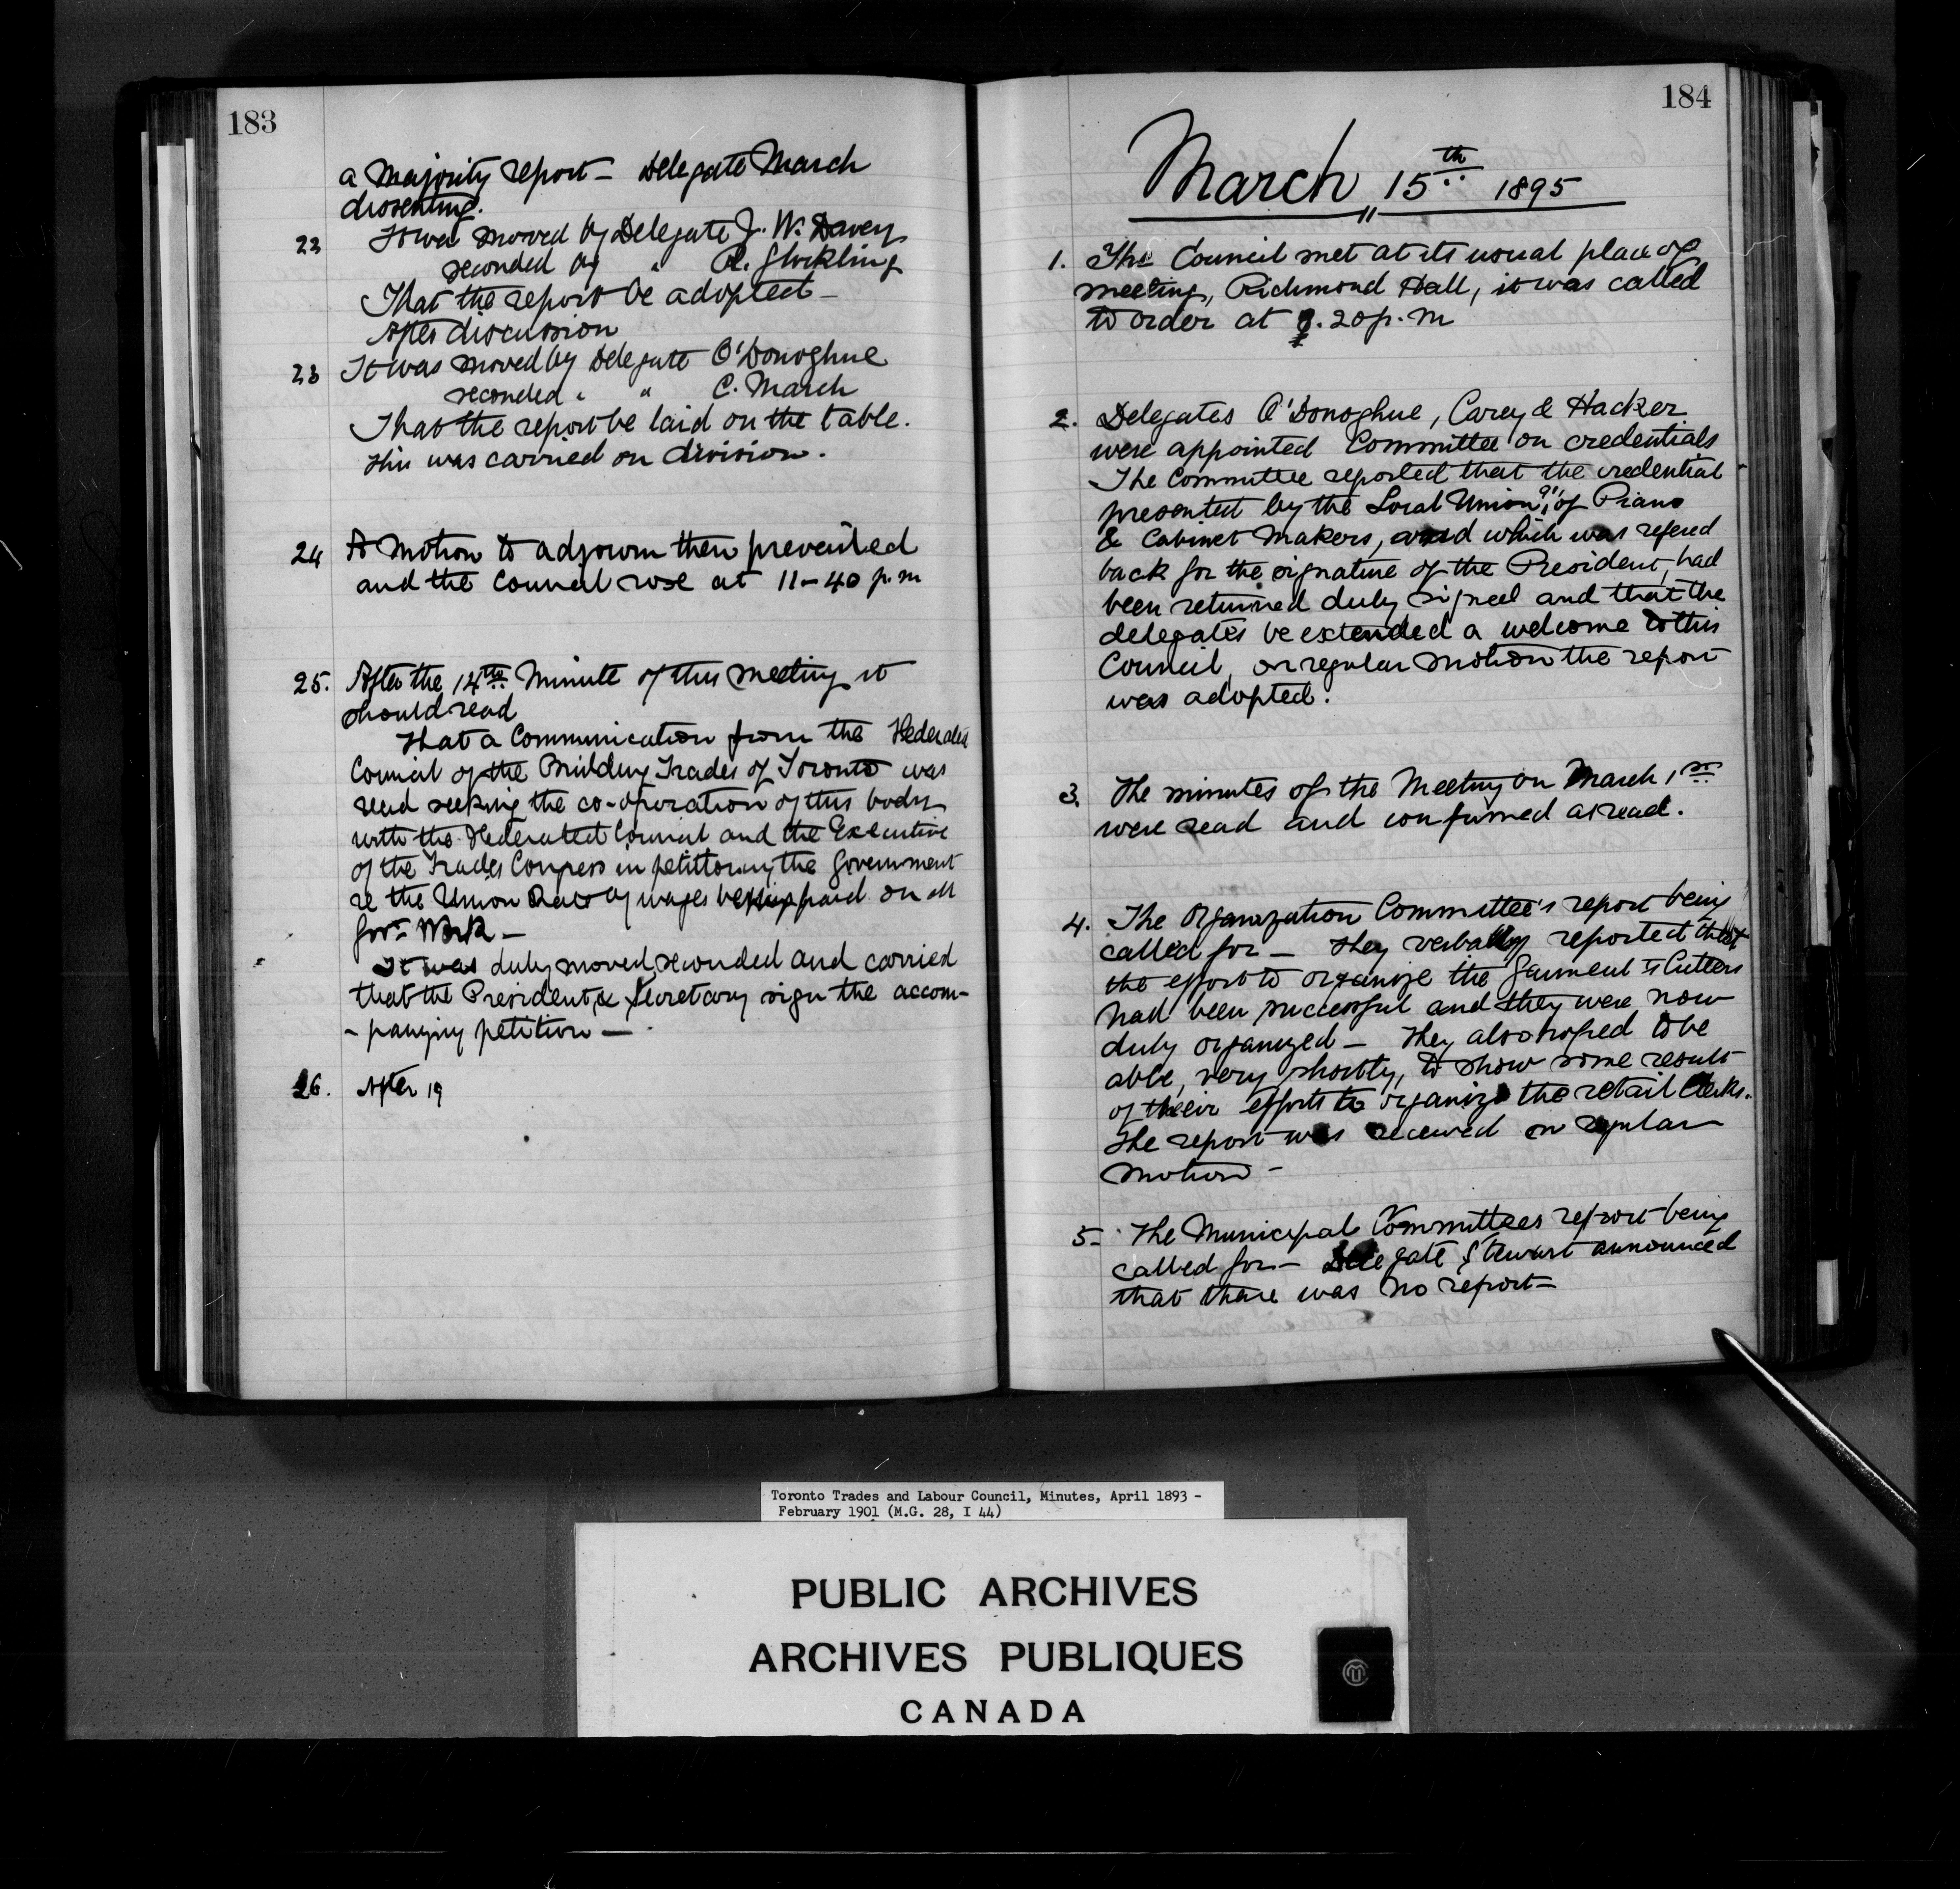 183
a Majority report — Delegate March
dissenting.
22 It was moved by Delegate J. W. Davey
seconded by " R. Glockling
That the report be adopted —
After discussion
23 It was moved by Delegate O'Donoghue
seconded " " C. March
That the report be laid on the table.
This was carried on division.
24 A Motion to adjourn then prevailed
and the Council rose at 11-40 p.m
25. After the 14th Minute of this meeting it
should read
that a Communication from the Federated
Council of the Building Trades of Toronto was
read seeking the co-operation of this body
with the Federated Council and the Executive
of the Trades Congress in petitioning the Government
re the Union Rate of wages being paid on all
Govt Work —
It was duly moved, seconded and carried
that the President & Secretary sign the accom-
- panying petition —
26. After 19
184
March 15th 1895
1. The Council met at its usual place of
meeting, Richmond Hall, it was called
to order at 8.20 p.m
2. Delegates O'Donoghue, Carey & Hacker
were appointed Committee on credentials
The Committee reported that the credential
presented by the Local Union 91, of Piano
& Cabinet Makers, and which was refered
back for the signature of the President, had
been returned duly signed and that the
delegates be extended a welcome to this
Council, on regular motion the report
was adopted.
3. The minutes of the Meeting on March 1st
were read and confirmed as read.
4. The Organization Committee's report being
called for — They verbally reported that
the effort to organize the Garment Cutters
had been successful and they were now
duly organized — They also hoped to be
able, very shortly, to show some result
of their efforts to organize the retail Clerks.
The report was received on regular
motion -
5- The Municipal Committees report being
called for — Delegate Stewart announced
that there was no report —
Toronto Trades and Labour Council, Minutes, April 1893 -
February 1901 (M.G. 28, I 44)
PUBLIC ARCHIVES
ARCHIVES PUBLIQUES
CANADA